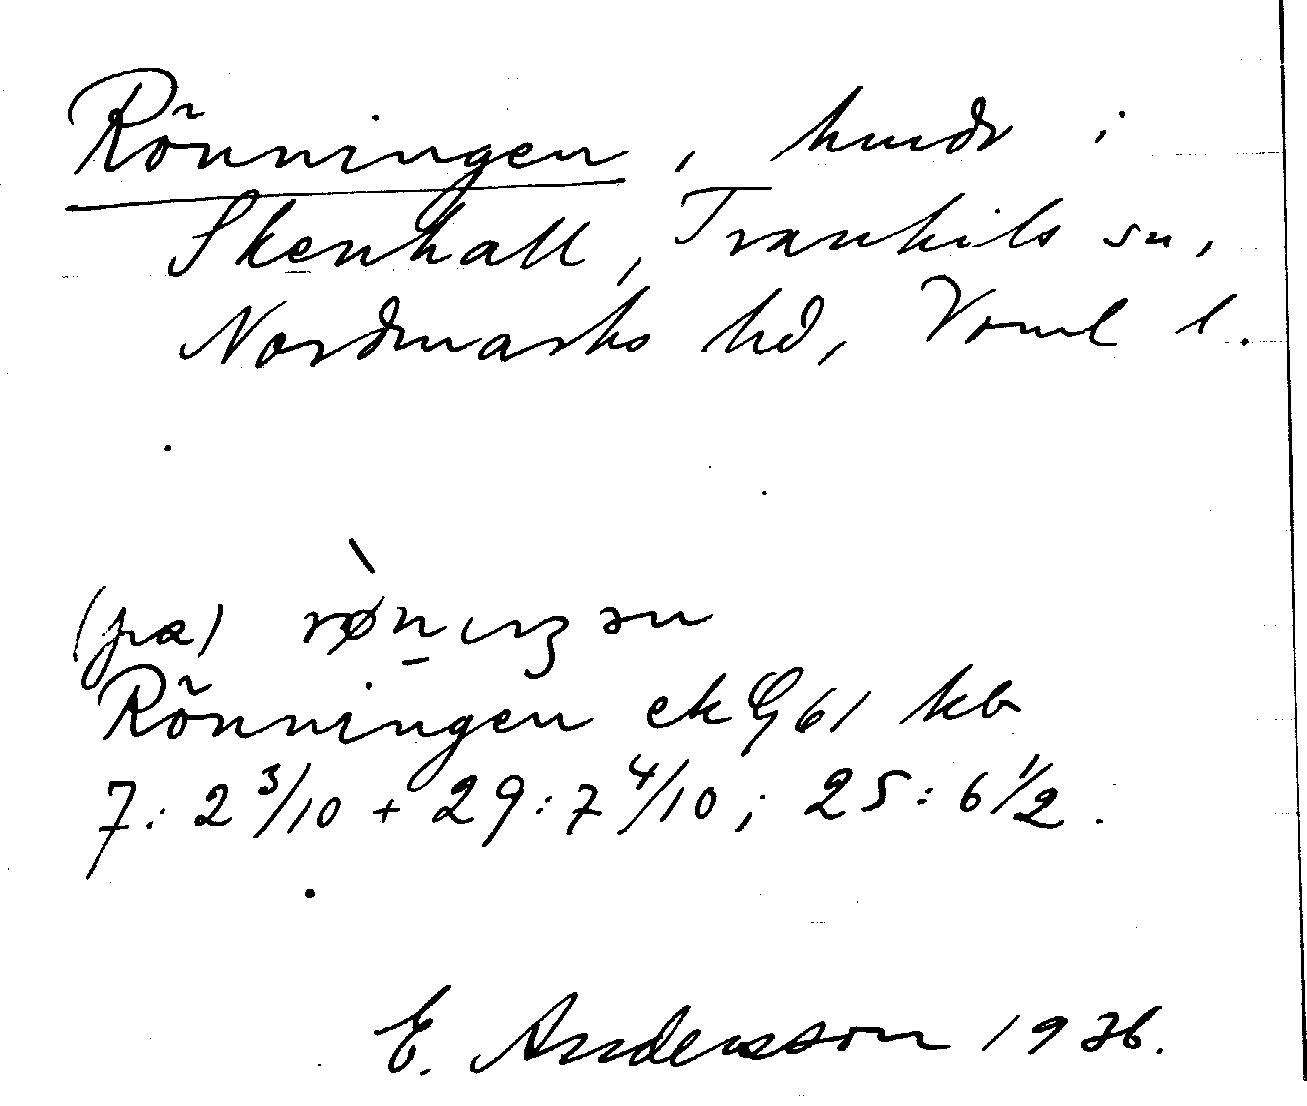 Rõnningen, hmdr i
Skenhall, Trankils sn,
Nordmarks hd, Vrml l.
(pα) røǹıŋən
Rõnningen ek G61 kb
7:2 3/10 + 29:7 4/10; 25:6 1/2.
E. Andersson 1936.